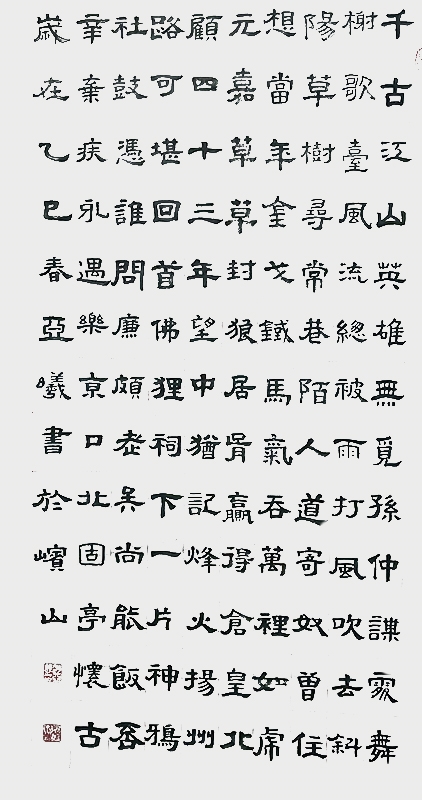 千古江山英雄無覓孫仲謀處舞
榭歌臺風流總被雨打風吹去斜
陽草樹尋常巷陌人道寄奴曾住
想當年金戈鐵馬氣吞萬裡如虎
元嘉草草封狼居胥贏得倉皇北
顧四十三年望中猶記烽火揚州
路可堪回首佛狸祠下一片神鴉
社鼓憑誰問廉頗老矣尚能飯否
辛棄疾永遇樂京口北固亭懷古
歲在乙巳春亞曦書於山